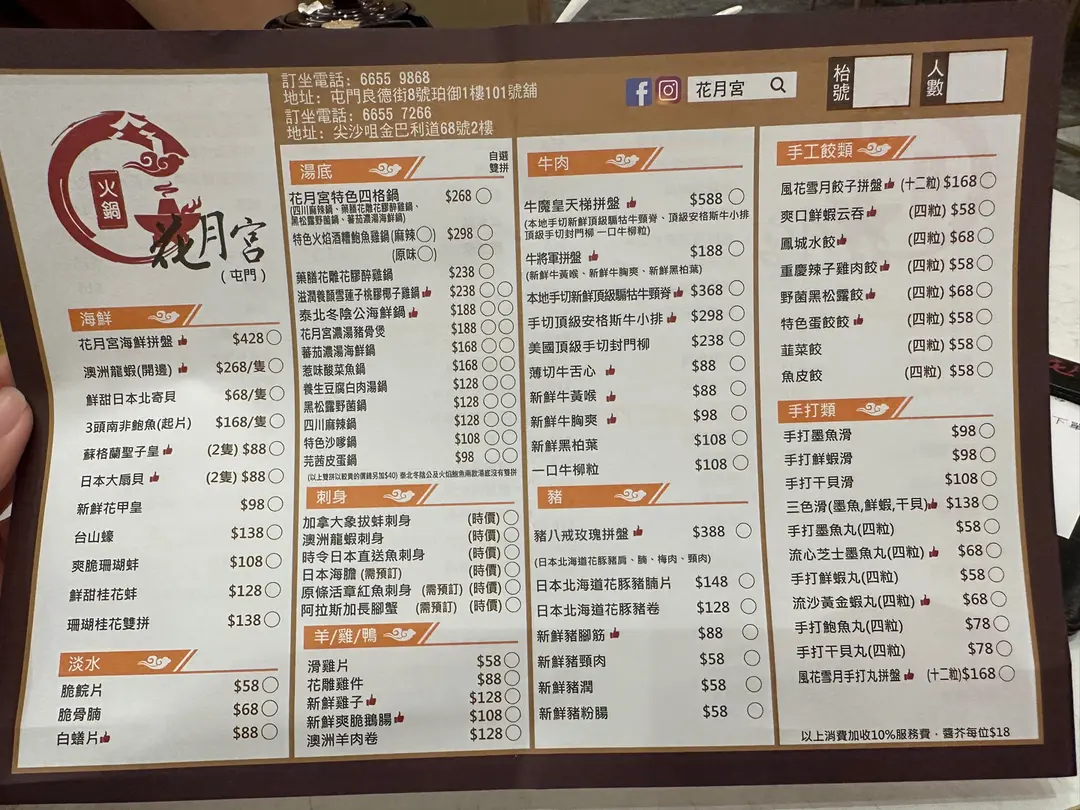 訂坐電話: 6655 9868
地址: 屯門良德街8號珀御1樓101號舖
訂坐電話: 6655 7266
地址: 尖沙咀金巴利道68號2樓
花月宮
枱號
人數
火鍋
花月宮
(屯門)
海鮮
花月宮海鮮拼盤 $428
澳洲龍蝦(開邊) $268/隻
鮮甜日本北寄貝 $68/隻
3頭南非鮑魚(起片) $168/隻
蘇格蘭聖子皇 (2隻) $88
日本大扇貝 (2隻) $88
新鮮花甲皇 $98
台山蠔 $138
爽脆珊瑚蚌 $108
鮮甜桂花蚌 $128
珊瑚桂花雙拼 $138
淡水
脆鯇片 $58
脆骨腩 $68
白鱔片 $88
湯底
自選雙拼
花月宮特色四格鍋 $268
(四川麻辣鍋、藥膳花雕花膠醉雞鍋、
黑松露野菌鍋、蕃茄濃湯海鮮鍋)
特色火焰酒糟鮑魚雞鍋(麻辣) $298
(原味)
藥膳花雕花膠醉雞鍋 $238
滋潤養顏雪蓮子桃膠椰子雞鍋 $238
泰北冬陰公海鮮鍋 $188
花月宮濃湯豬骨煲 $188
蕃茄濃湯海鮮鍋 $168
惹味酸菜魚鍋 $168
養生豆腐白肉湯鍋 $128
黑松露野菌鍋 $128
四川麻辣鍋 $128
特色沙嗲鍋 $108
芫茜皮蛋鍋 $98
(以上雙拼以較貴的價錢另加$40) 泰北冬陰公及火焰鮑魚兩款湯底沒有雙拼
刺身
加拿大象拔蚌刺身 (時價)
澳洲龍蝦刺身 (時價)
時令日本直送魚刺身 (時價)
日本海膽 (需預訂) (時價)
原條活章紅魚刺身 (需預訂) (時價)
阿拉斯加長腳蟹 (需預訂) (時價)
羊/雞/鴨
滑雞片 $58
花雕雞件 $88
新鮮雞子 $128
新鮮爽脆鵝腸 $108
澳洲羊肉卷 $128
牛肉
牛魔皇天梯拼盤 $588
(本地手切新鮮頂級騸牯牛頸脊、頂級安格斯牛小排
頂級手切封門柳 一口牛柳粒)
牛將軍拼盤 $188
(新鮮牛黃喉、新鮮牛胸爽、新鮮黑柏葉)
本地手切新鮮頂級騸牯牛頸脊 $368
手切頂級安格斯牛小排 $298
美國頂級手切封門柳 $238
薄切牛舌心 $88
新鮮牛黃喉 $88
新鮮牛胸爽 $98
新鮮黑柏葉 $108
一口牛柳粒 $108
豬
豬八戒玫瑰拼盤 $388
(日本北海道花豚豬肩、腩、梅肉、頸肉)
日本北海道花豚豬腩片 $148
日本北海道花豚豬卷 $128
新鮮豬腳筋 $88
新鮮豬頸肉 $58
新鮮豬潤 $58
新鮮豬粉腸 $58
手工餃類
風花雪月餃子拼盤 (十二粒) $168
爽口鮮蝦云吞 (四粒) $58
鳳城水餃 (四粒) $68
重慶辣子雞肉餃 (四粒) $58
野菌黑松露餃 (四粒) $68
特色蛋餃餃 (四粒) $58
韮菜餃 (四粒) $58
魚皮餃 (四粒) $58
手打類
手打墨魚滑 $98
手打鮮蝦滑 $98
手打干貝滑 $108
三色滑(墨魚,鮮蝦,干貝) $138
手打墨魚丸(四粒) $58
流心芝士墨魚丸(四粒) $68
手打鮮蝦丸(四粒) $58
流沙黃金蝦丸(四粒) $68
手打鮑魚丸(四粒) $78
手打干貝丸(四粒) $78
風花雪月手打丸拼盤 (十二粒) $168
以上消費加收10%服務費·醬芥每位$18